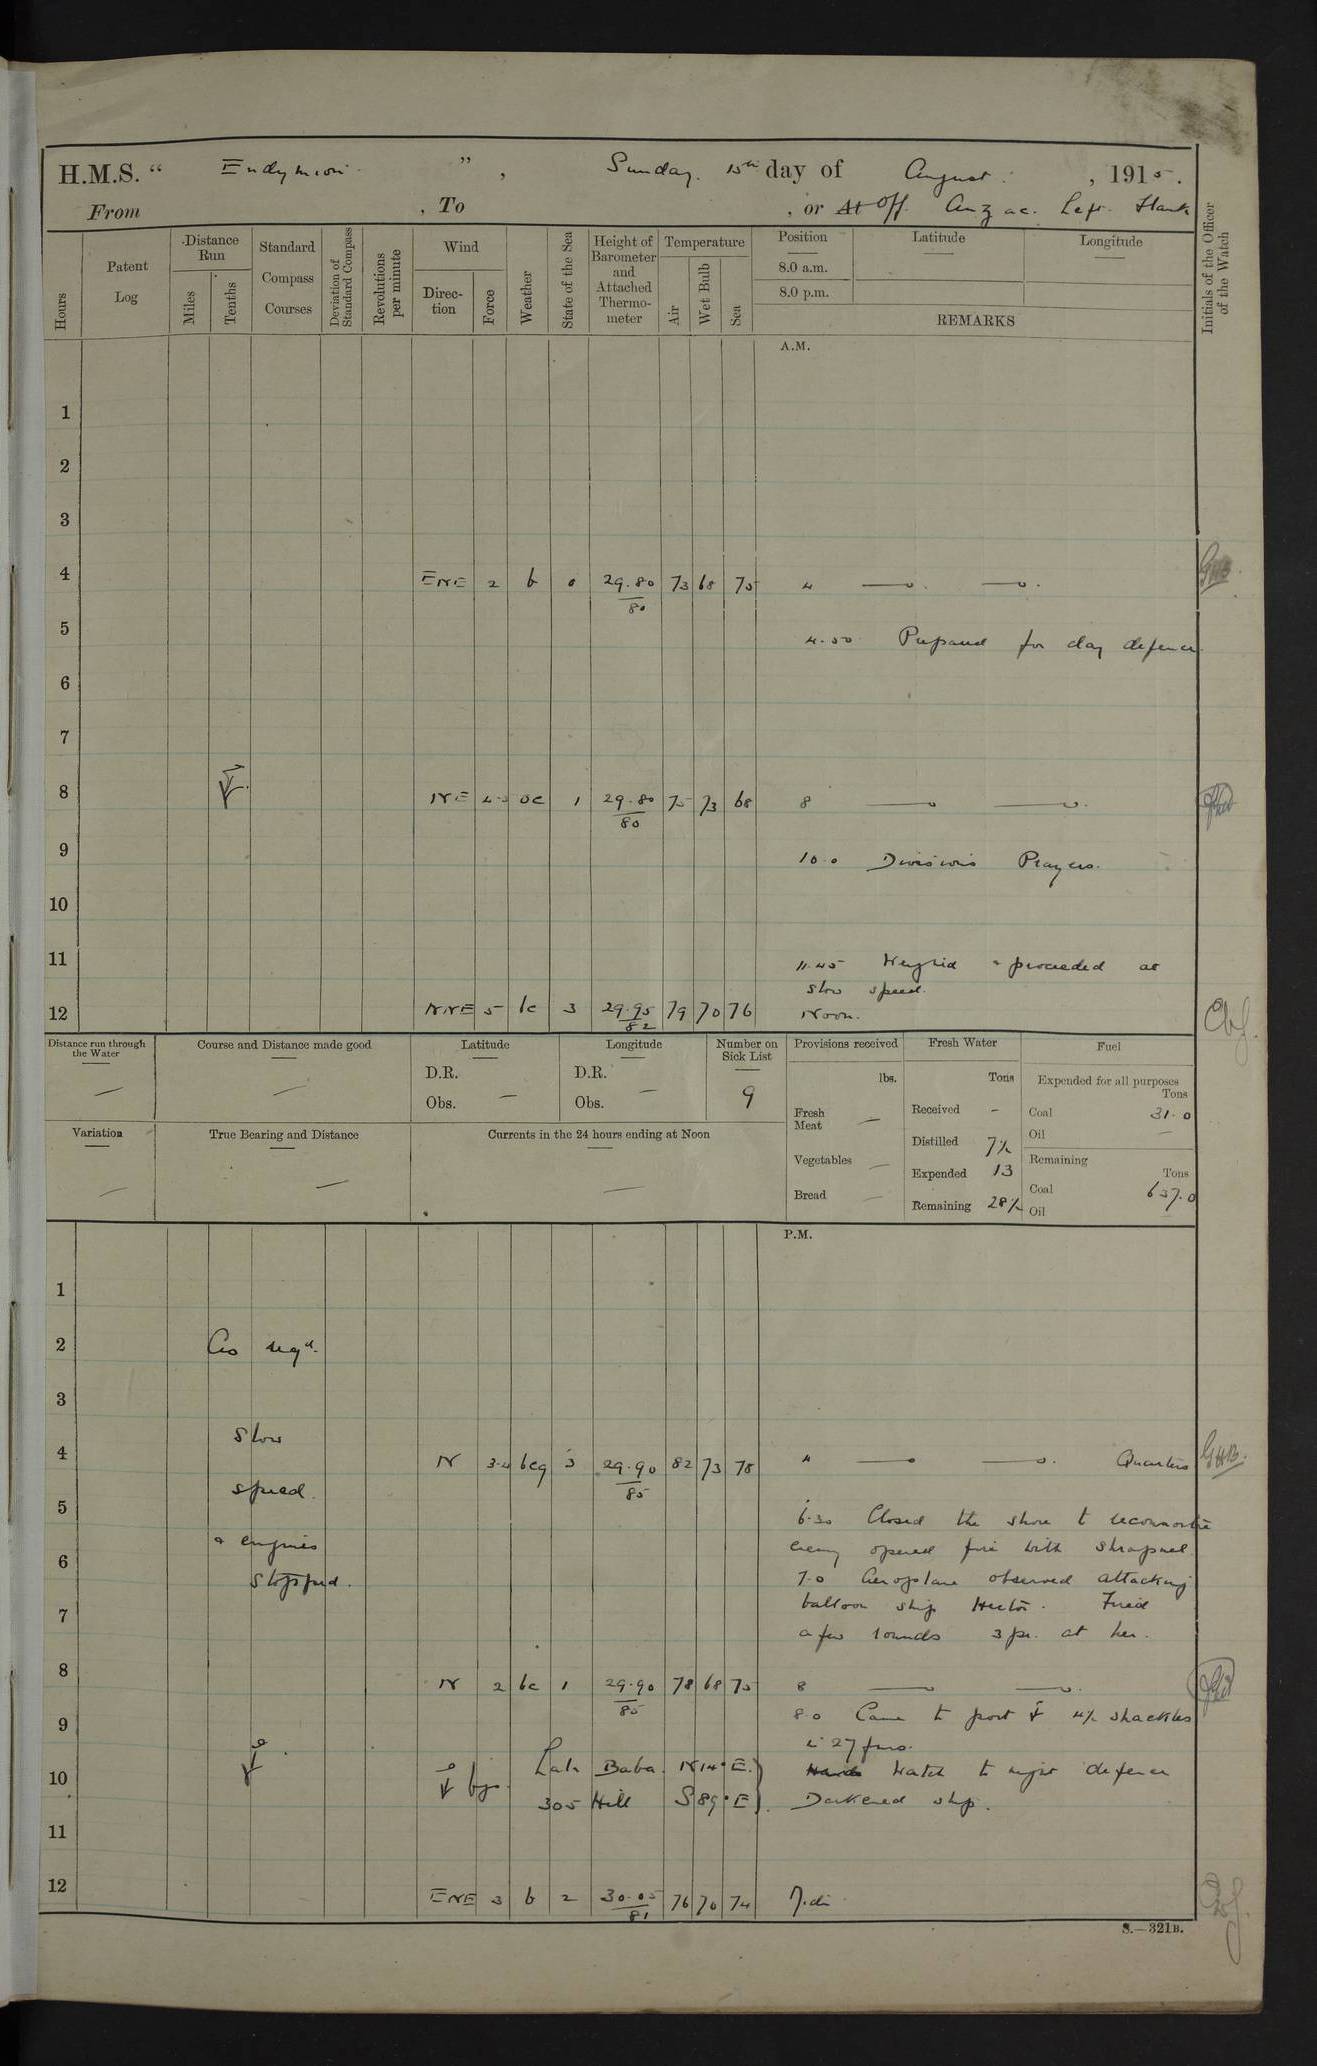 H.M.S. “ Endymion ” , Sunday. 15th day of August. , 1915.
From , To , or At Off. Anzac. Left. Flank
Hours
Patent Log
Distance Run
Miles
Tenths
Standard Compass Courses
Deviation of Standard Compass
Revolutions per minute
Wind
Direc-tion
Force
Weather
State of the Sea
Height of Barometer and Attached Thermo-meter
Temperature
Air
Wet Bulb
Sea
Position
Latitude
Longitude
8.0 a.m.
8.0 p.m.
REMARKS
Initials of the Officer of the Watch
A.M.
1
2
3
4 ENE 2 b 0 29.80/80 73 68 75 4 —o. —o. GHB.
5 4.50 Prepared for day defence
6
7
8 NE 2.3 oc 1 29.80/80 75 73 68 8 —o —o.
9 10.0 Divisions Prayers.
10
11 11.45 Weighed & proceeded at
slow speed.
12 NNE 5 bc 3 29.95/82 79 70 76 Noon.
Distance run through the Water —
Course and Distance made good —
Latitude
D.R.
Obs. —
Longitude
D.R. —
Obs.
Number on Sick List
9
Provisions received
lbs.
Fresh Meat —
Vegetables —
Bread —
Fresh Water
Tons
Received -
Distilled 7½
Expended 13
Remaining 28½
Fuel
Expended for all purposes
Tons
Coal 31.0
Oil —
Remaining
Tons
Coal 637.0
Oil
Variation —
True Bearing and Distance —
Currents in the 24 hours ending at Noon —
P.M.
1
2 As reqd.
3
Slow
4 N 3.4 bcq 3 29.90/85 82 73 78 4 —o —o. Quarters GHB.
speed.
5 6.30 Closed the shore to reconnoitre
& engines enemy opened fire with shrapnel
6 stopped. 7.0 Aeroplane observed attacking
7 balloon ship Hector. Fired
a few rounds 3 pr. at her.
8 N 2 bc 1 29.90/85 78 68 75 8 —o —o.
9 8.0 Came to port ⚓ 4½ shackles
in 27 fms.
10 ⚓ bgs. Lala Baba. N14°E. Hands Watch to night defence
305 Hill S89°E Darkened ship.
11
12 ENE 3 b 2 30.05/81 76 70 74
S.—321B.